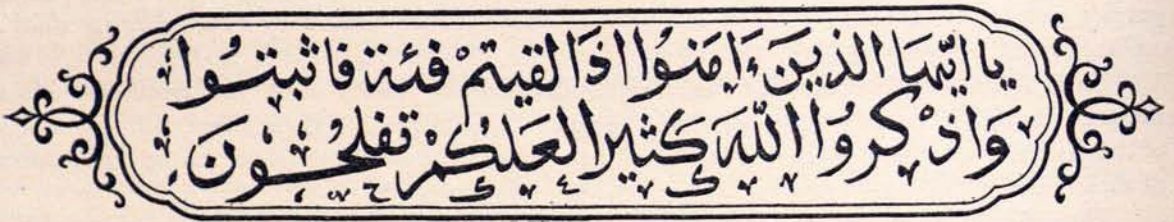 يا ايّها الذين ءامنوا اذا لقيتمْ فئة فاثبتُوا
وَاذْكروُا اللّهَ كثيرا لعَلكمْ تفلحُونَ